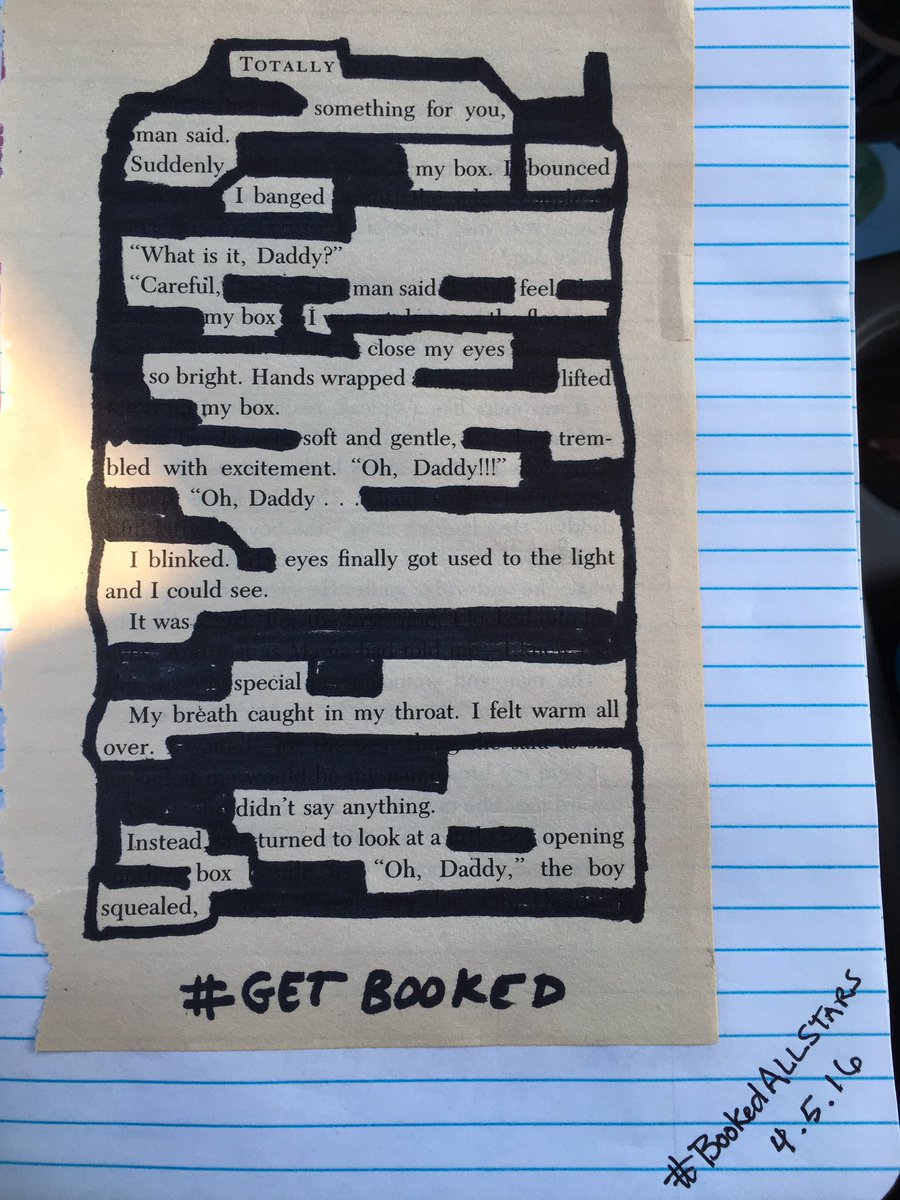 TOTALLY
something for you,
man said.
Suddenly my box. I bounced
I banged
"What is it, Daddy?"
"Careful, man said feel
my box I
close my eyes
so bright. Hands wrapped lifted
my box.
soft and gentle, trem-
bled with excitement. "Oh, Daddy!!!"
"Oh, Daddy . . .
I blinked. eyes finally got used to the light
and I could see.
It was
special
My breath caught in my throat. I felt warm all
over.
didn't say anything.
Instead turned to look at a opening
box "Oh, Daddy," the boy
squealed,
#GET BOOKED
#BookedALLStARS
4.5.16